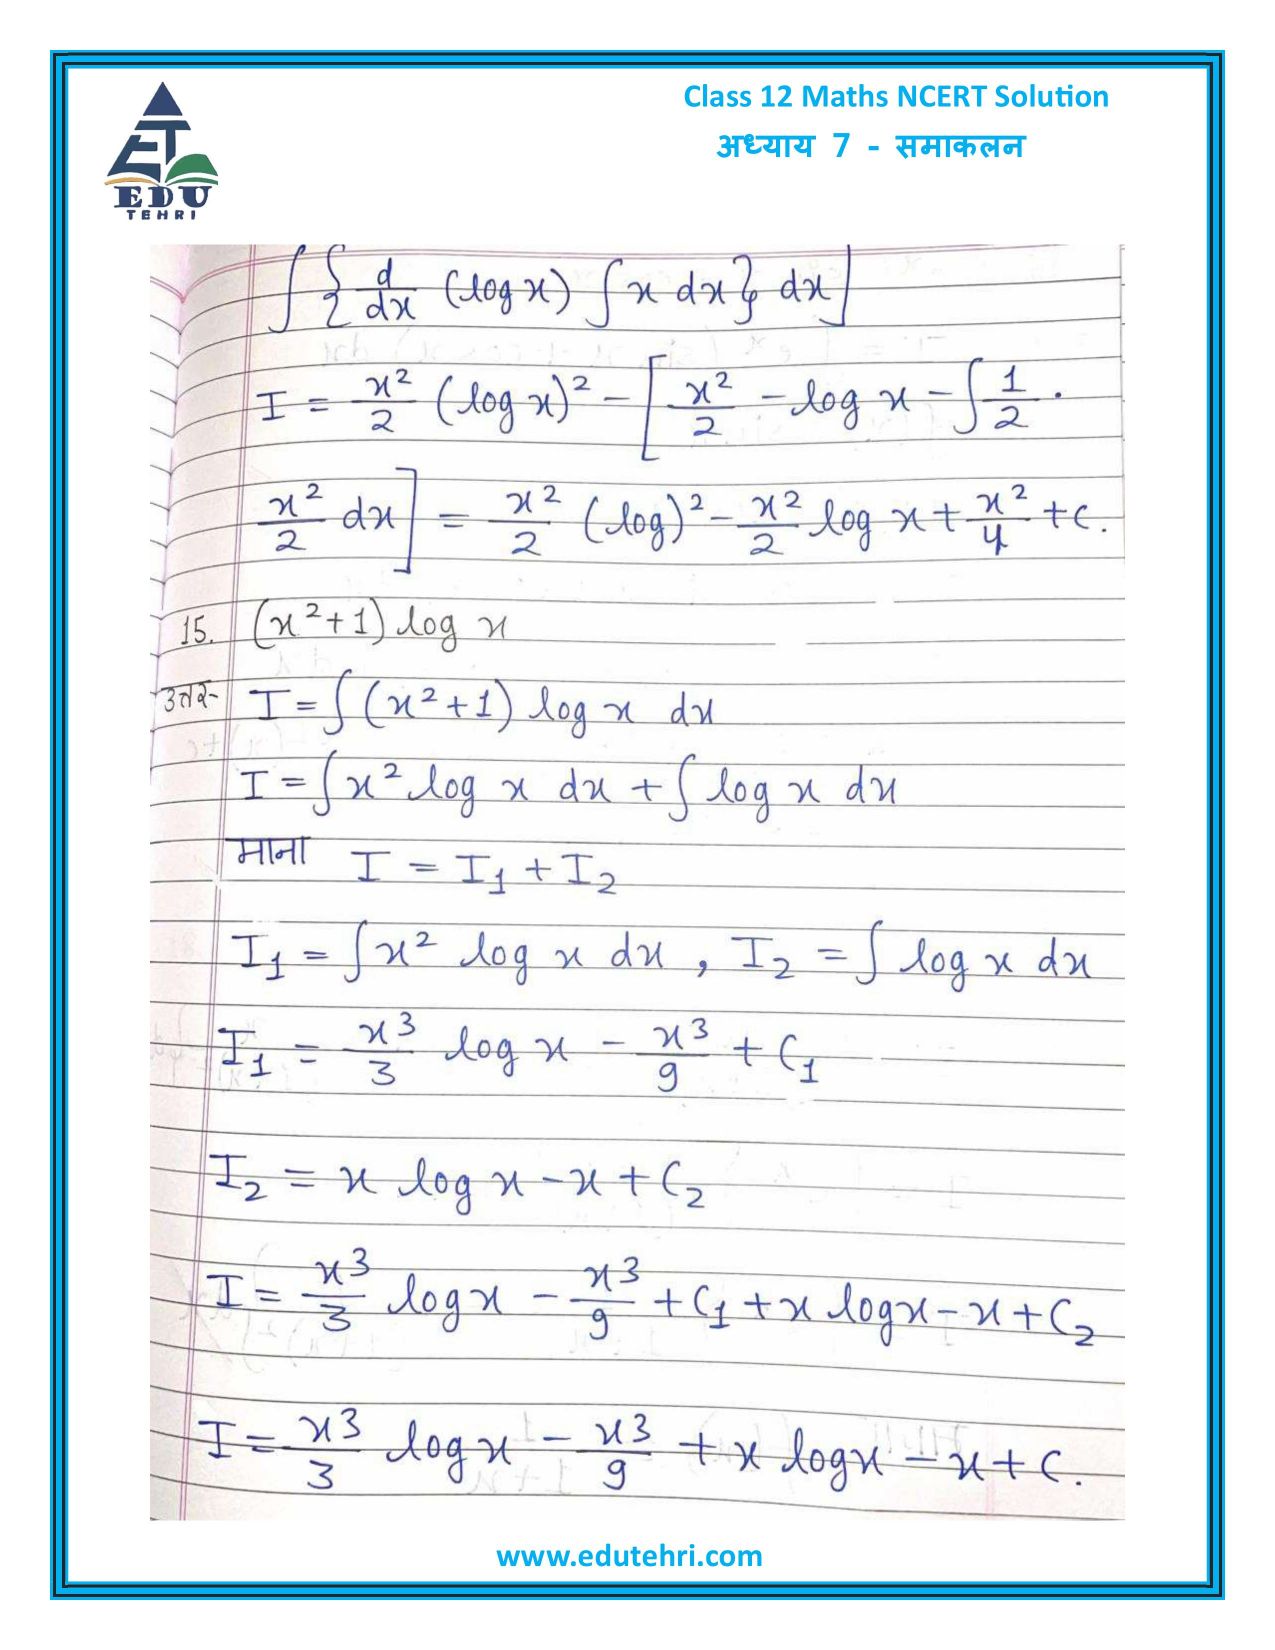 ET
EDU
TEHRI
Class 12 Maths NCERT Solution
अध्याय 7 - समाकलन
∫ { d/dx (log x) ∫ x dx } dx ]
I = x²/2 (log x)² - [ x²/2 - log x - ∫ 1/2 .
x²/2 dx ] = x²/2 (log)² - x²/2 log x + x²/4 + c.
15. (x²+1) log x
उत्तर- I = ∫ (x²+1) log x dx
I = ∫ x² log x dx + ∫ log x dx
माना I = I₁ + I₂
I₁ = ∫ x² log x dx , I₂ = ∫ log x dx
I₁ = x³/3 log x - x³/9 + C₁
I₂ = x log x - x + C₂
I = x³/3 log x - x³/9 + C₁ + x log x - x + C₂
I = x³/3 log x - x³/9 + x log x - x + C.
www.edutehri.com